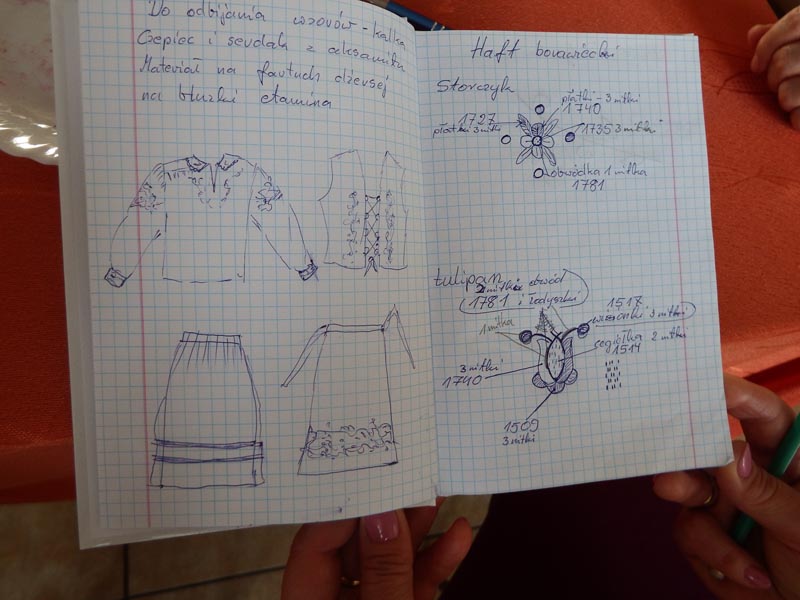 Do odbijania wzorów - kalka
Czepiec i serdak z aksamitu
Materiał na fartuch dżersej
na bluzki etamina
Haft borowiecki
Storczyk
płatki - 3 nitki
1740
1727
płatki 3 nitki
1735 3 nitki
obwódka 1 nitka
1781
tulipan
2 nitki obwód
(1781 i łodyżki)
1517
wisionki 3 nitki
1 nitka
cegiółka 2 nitki
1517
3 nitki
1740
1509
3 nitki